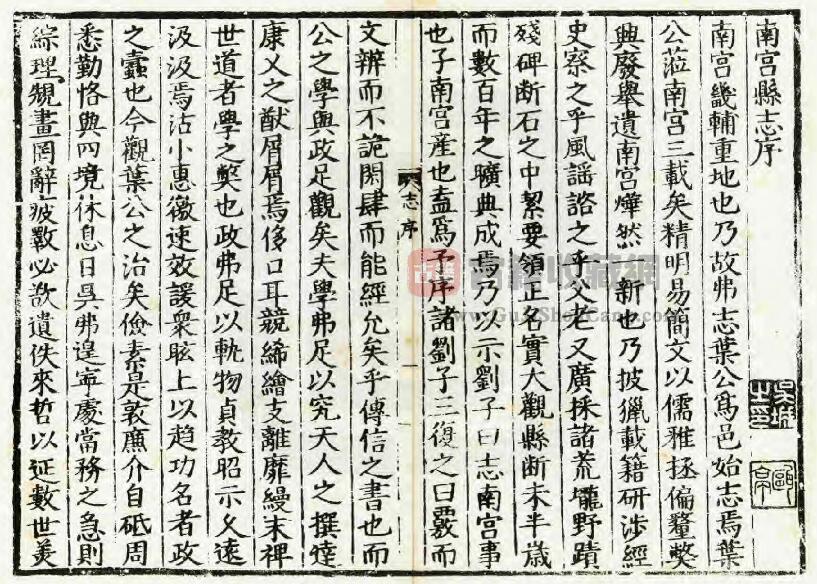 南宫縣志序
南宫畿輔重地也乃故弗志葉公寫邑始志焉葉
公蒞南宫三載矣精明易簡文以儒雅拯偏釐獘
興廢舉遺南宫燁然一新也乃披獵載籍研涉經
史察之乎風謡諮之乎父老又廣採諸荒壠野蹟
殘碑断石之中絜要領正名實大觀縣断未半歳
而數百年之曠典成焉乃以示劉子曰志南宫事
也子南宫產也盍爲予序諸劉子三復之曰覈而
志序
一
文辨而不詭閎肆而能經允矣乎傳信之書也而
公之學與政足觀矣夫學弗足以究天人之撰達
康乂之猷屑屑焉侈口耳競絺繪支離靡縵末裨
世道者學之獘也政弗足以軌物貞教昭示久遠
汲汲焉沽小惠徼速效諼衆眩上以趋功名者政
之蠹也今觀葉公之治矣儉素是敦廉介自砥周
悉勤恪與四境休息日昃弗遑寧處當務之急則
綜理䂓畫罔辭疲斁必欲遺佚來哲以延數世羙